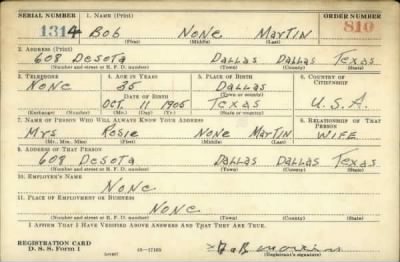 SERIAL NUMBER 1. NAME (Print) ORDER NUMBER
1314 BOB NONE MARTIN 810
(First) (Middle) (Last)
2. ADDRESS (Print)
608 DESOTA DALLAS DALLAS TEXAS
(Number and street or R. F. D. number) (Town) (County) (State)
3. TELEPHONE 4. AGE IN YEARS 5. PLACE OF BIRTH 6. COUNTRY OF CITIZENSHIP
NONE 35 DALLAS
DATE OF BIRTH (Town or county)
OCT. 11 1905 TEXAS U.S.A.
(Exchange) (Number) (Mo.) (Day) (Yr.) (State or country)
7. NAME OF PERSON WHO WILL ALWAYS KNOW YOUR ADDRESS 8. RELATIONSHIP OF THAT PERSON
MRS ROSIE NONE MARTIN WIFE
(Mr., Mrs., Miss) (First) (Middle) (Last)
9. ADDRESS OF THAT PERSON
608 DESOTA DALLAS DALLAS TEXAS
(Number and street or R. F. D. number) (Town) (County) (State)
10. EMPLOYER'S NAME
NONE
11. PLACE OF EMPLOYMENT OR BUSINESS
NONE
(Number and street or R. F. D. number) (Town) (County) (State)
I AFFIRM THAT I HAVE VERIFIED ABOVE ANSWERS AND THAT THEY ARE TRUE.
REGISTRATION CARD
D. S. S. Form 1 (Registrant's signature)